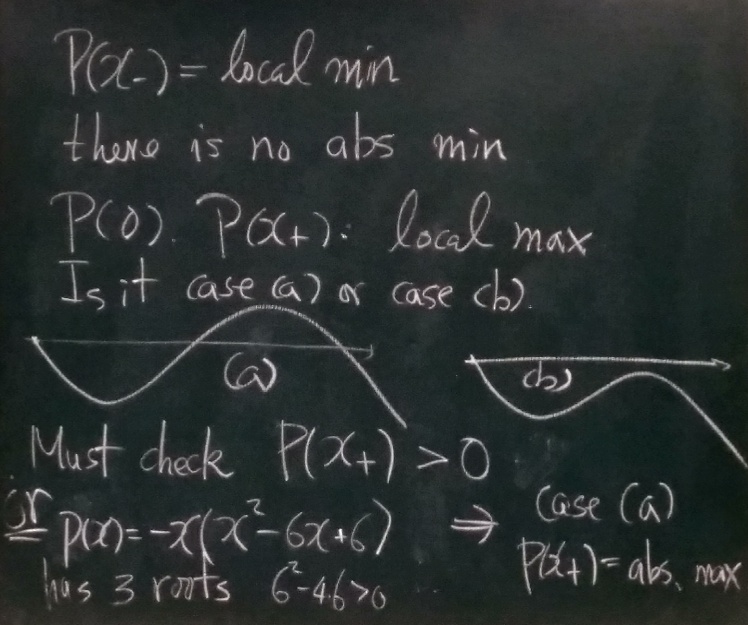 P(x₋) = local min
there is no abs min
P(0). P(x₊): local max
Is it case (a) or case (b).
(a)
(b)
Must check P(x₊) > 0
or P(x) = -x(x²-6x+6) ⇒ Case (a)
has 3 roots 6²-4.6>0 P(x₊) = abs. max